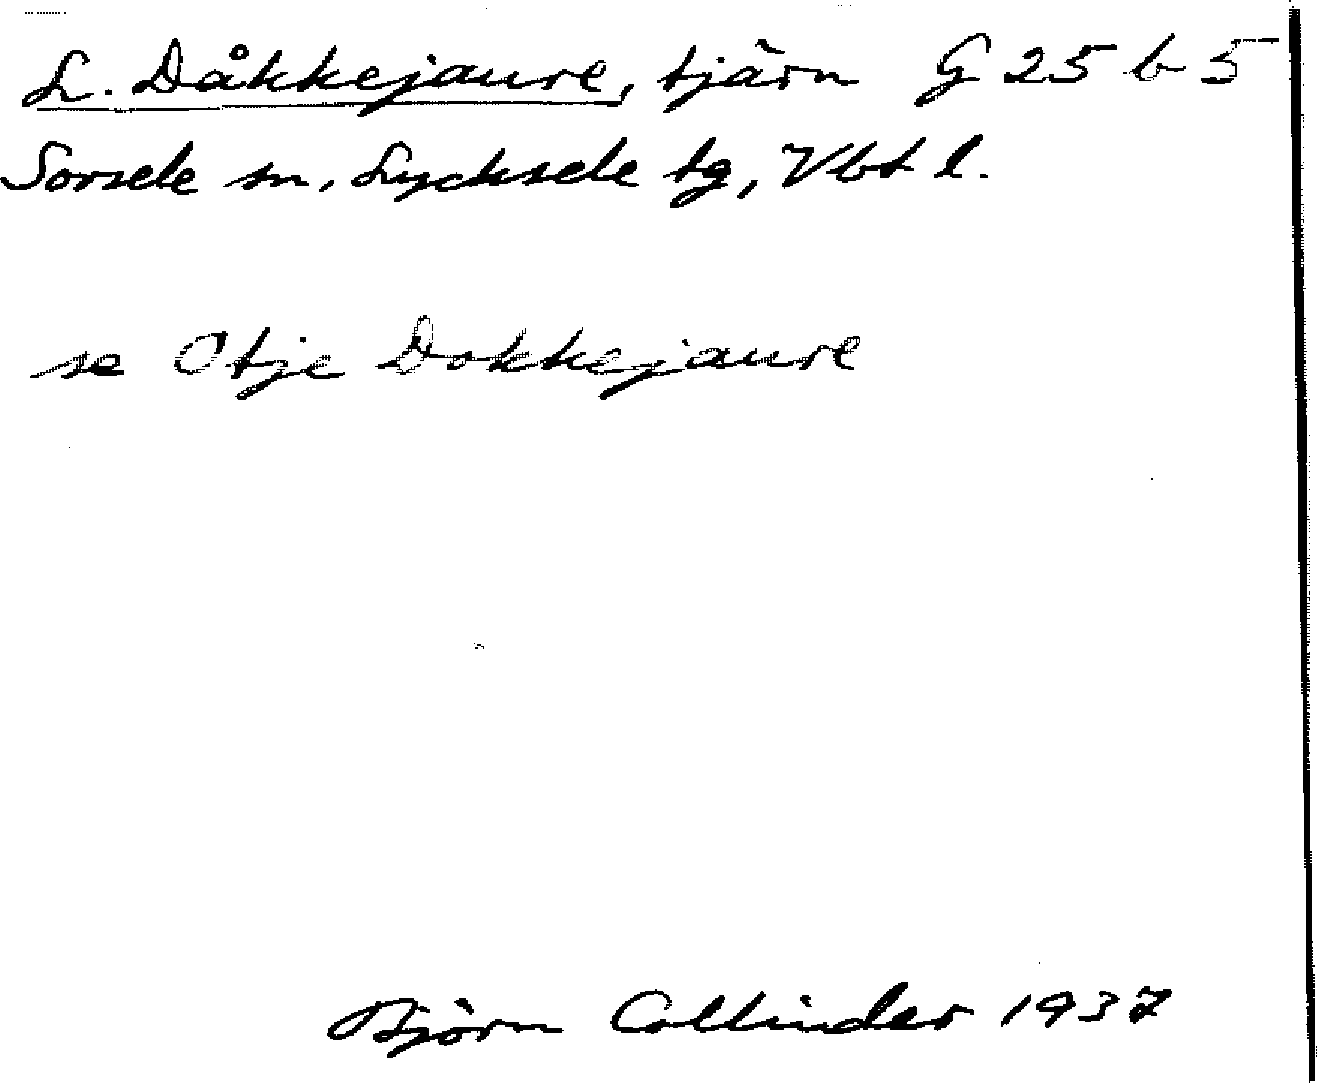 L. Dåkkejaure, tjärn G 25 b 5
Sorsele sn, Lycksele tg, Vbt l.
se Otje Dokkejaure
Björn Collinder 1937